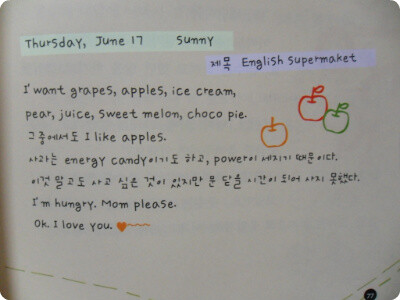 Thursday, June 17 Sunny
제목 English Supermaket
I want grapes, apples, ice cream,
pear, juice, sweet melon, choco pie.
그중에서도 I like apples.
사과는 energy candy이기도 하고, power이 세지기 때문이다.
이것 말고도 사고 싶은 것이 있지만 문 닫을 시간이 되어 사지 못했다.
I'm hungry. Mom please.
Ok. I love you.
77